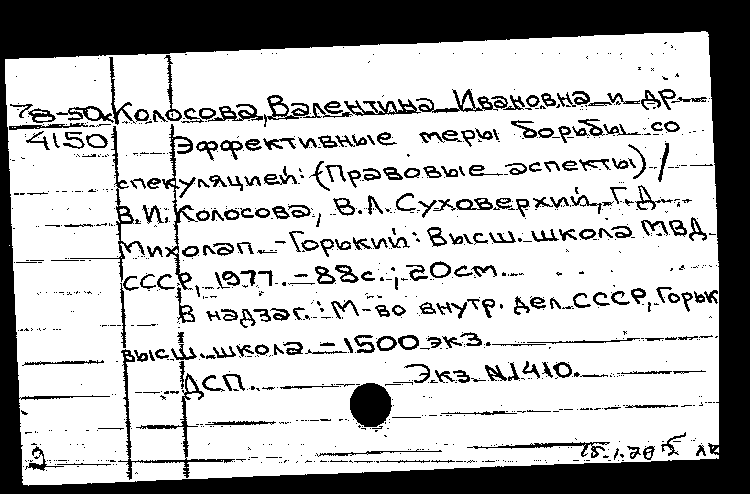 78-50к Колосова, Валентина Ивановна и др
4150 Эффективные меры борьбы со
спекуляцией: (Правовые аспекты) /
В.И. Колосова, В.А. Суховерхий, Г.Д.
Михолап. - Горький: Высш. школа МВД
СССР, 1977. - 88с.; 20см.
В надзаг.: М-во внутр. дел СССР, Горьк
высш. школа. - 1500 экз.
ДСП. Экз. N1410.
2